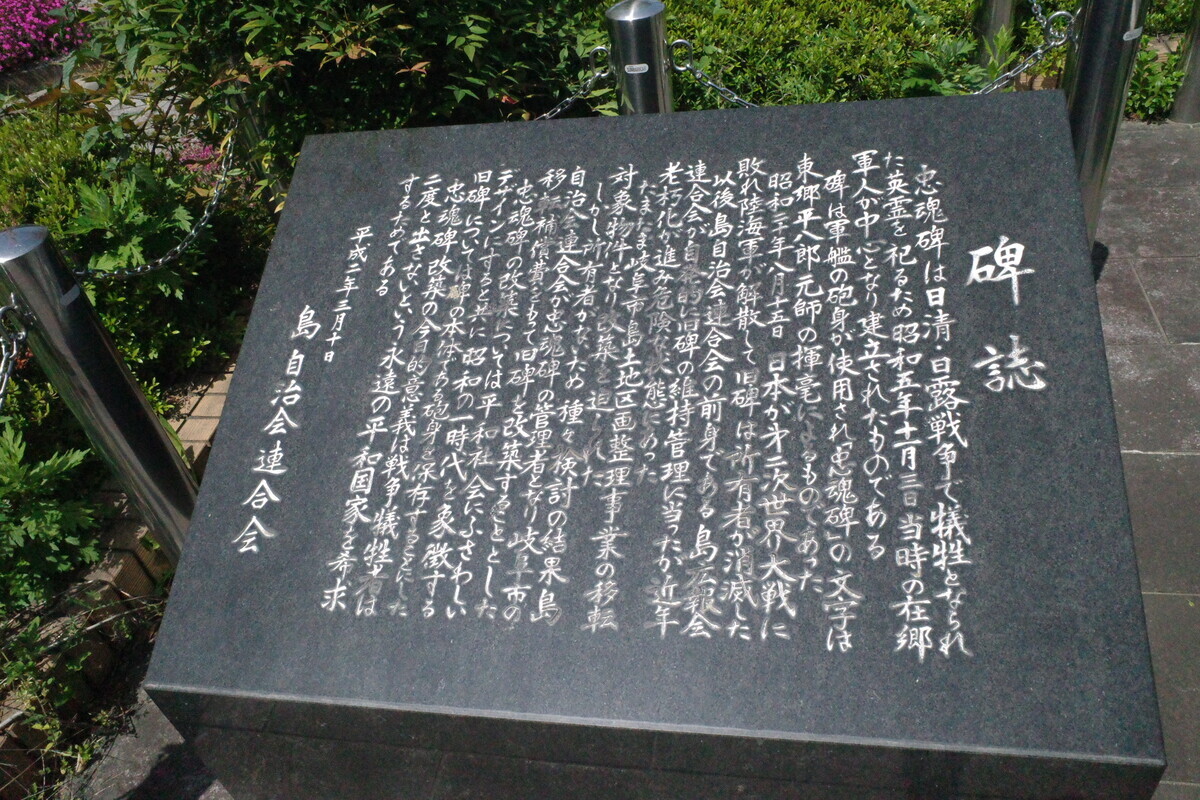 碑誌
忠魂碑は日清 日露戦争で犠牲となられ
た英霊を祀るため昭和五年十一月三日 当時の在郷
軍人が中心となり建立されたものである
碑は軍艦の砲身が使用され「忠魂碑」の文字は
東郷平八郎元師の揮毫によるものであった
昭和二十年八月十五日 日本が第二次世界大戦に
敗れ陸海軍が解散して旧碑は所有者が消滅した
以後島自治会連合会の前身である島広報会
連合会が自発的に旧碑の維持管理に当ったが近年
老朽化が進み危険な状態にあった
たまたま岐阜市島土地区画整理事業の移転
対象物件となり改築を迫られた
しかし所有者がないため 種々検討の結果島
自治会連合会が忠魂碑の管理者となり岐阜市の
移転補償費をもって旧碑を改築することとした
忠魂碑の改築については平和社会にふさわしい
デザインにすると共に昭和の一時代を象徴する
旧碑については碑の本体である砲身を保存することにした
忠魂碑改築の今日的意義は戦争犠牲者は
二度と出さないという永遠の平和国家を希求
するためである
平成二年三月十日
島自治会連合会